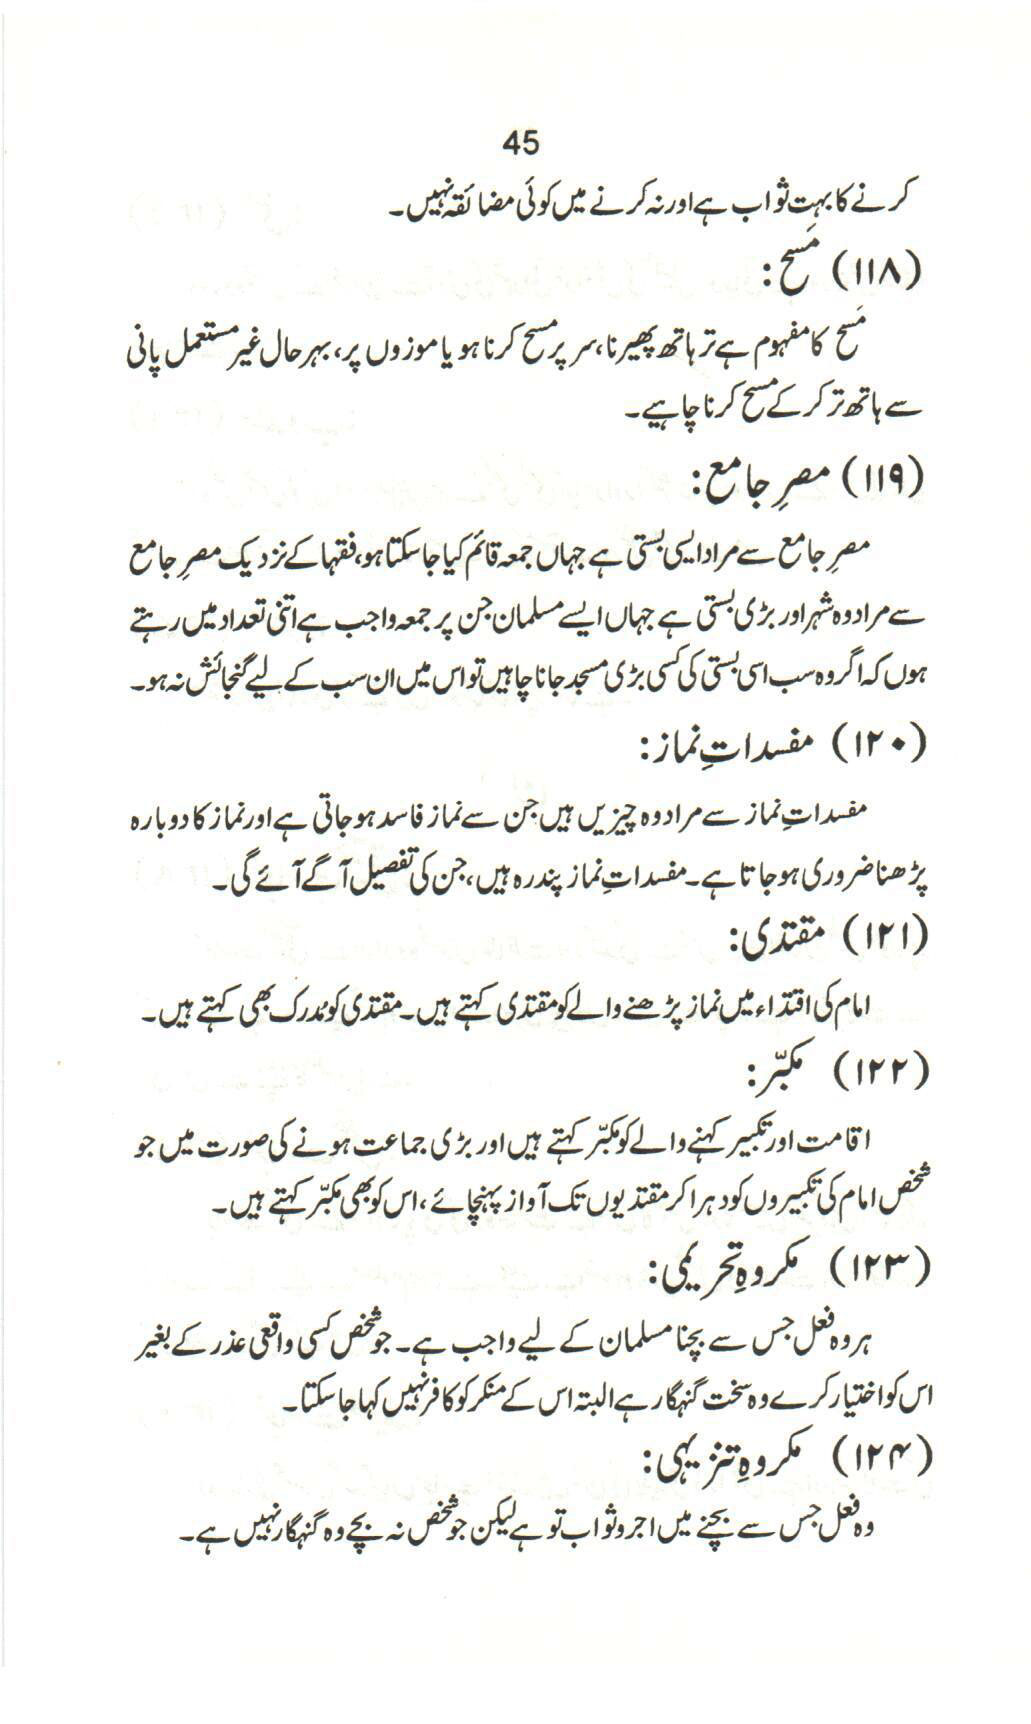 45
کرنے کا بہت ثواب ہے اور نہ کرنے میں کوئی مضائقہ نہیں۔
(۱۱۸) مَسح:
مَسح کا مفہوم ہے تر ہاتھ پھیرنا، سر پر مسح کرنا ہو یا موزوں پر، بہر حال غیر مستعمل پانی
سے ہاتھ تر کر کے مسح کرنا چاہیے۔
(۱۱۹) مصرِ جامع:
مصرِ جامع سے مراد ایسی بستی ہے جہاں جمعہ قائم کیا جا سکتا ہو، فقہا کے نزدیک مصرِ جامع
سے مراد وہ شہر اور بڑی بستی ہے جہاں ایسے مسلمان جن پر جمعہ واجب ہے اتنی تعداد میں رہتے
ہوں کہ اگر وہ سب اسی بستی کی کسی بڑی مسجد جانا چاہیں تو اس میں ان سب کے لیے گنجائش نہ ہو۔
(۱۲۰) مفسداتِ نماز:
مفسداتِ نماز سے مراد وہ چیزیں ہیں جن سے نماز فاسد ہو جاتی ہے اور نماز کا دوبارہ
پڑھنا ضروری ہو جاتا ہے۔ مفسداتِ نماز پندرہ ہیں، جن کی تفصیل آگے آئے گی۔
(۱۲۱) مقتدی:
امام کی اقتداء میں نماز پڑھنے والے کو مقتدی کہتے ہیں۔ مقتدی کو مُدرک بھی کہتے ہیں۔
(۱۲۲) مکبّر:
اقامت اور تکبیر کہنے والے کو مکبّر کہتے ہیں اور بڑی جماعت ہونے کی صورت میں جو
شخص امام کی تکبیروں کو دہرا کر مقتدیوں تک آواز پہنچائے، اس کو بھی مکبّر کہتے ہیں۔
(۱۲۳) مکروہِ تحریمی:
ہر وہ فعل جس سے بچنا مسلمان کے لیے واجب ہے۔ جو شخص کسی واقعی عذر کے بغیر
اس کو اختیار کرے وہ سخت گنہگار ہے البتہ اس کے منکر کو کافر نہیں کہا جا سکتا۔
(۱۲۴) مکروہِ تنزیہی:
وہ فعل جس سے بچنے میں اجر و ثواب تو ہے لیکن جو شخص نہ بچے وہ گنہگار نہیں ہے۔